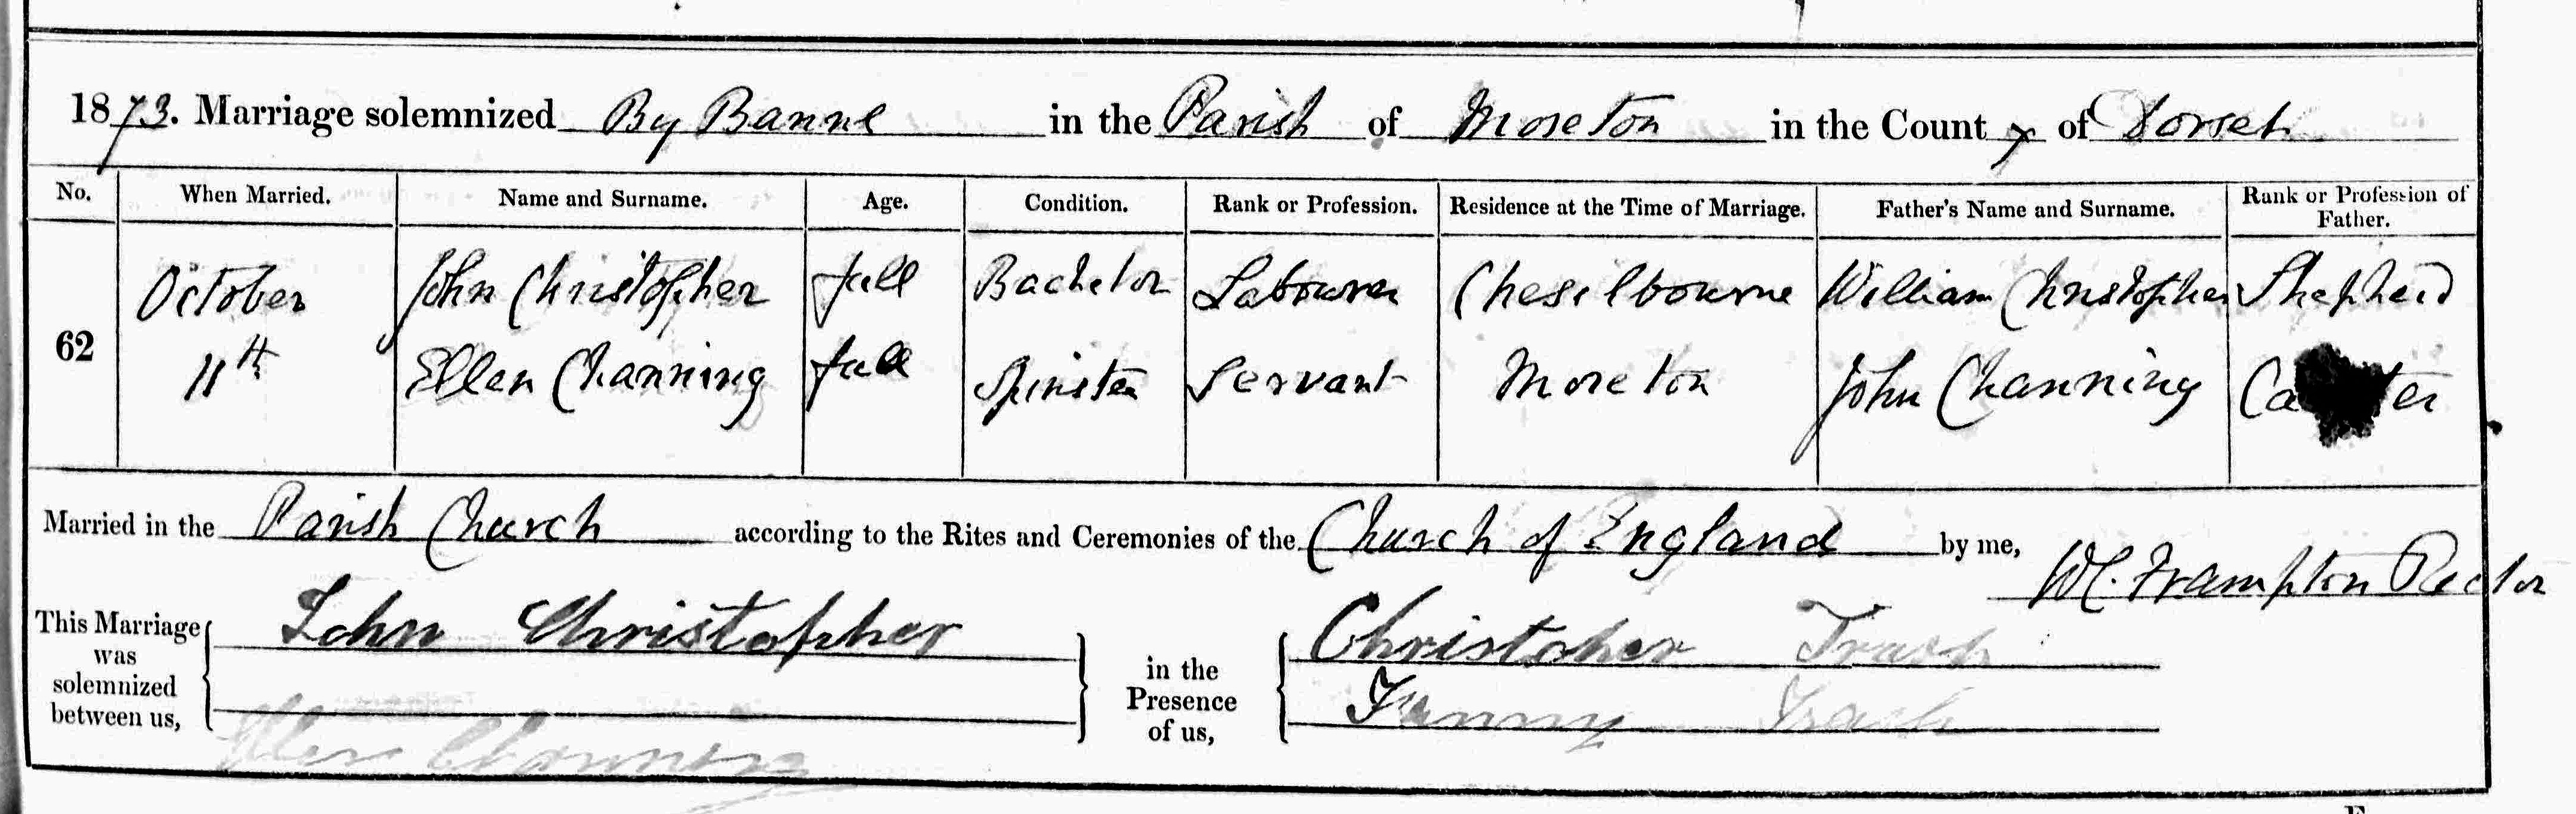 1873. Marriage solemnized By Banns in the Parish of Moreton in the County of Dorset
No. When Married. Name and Surname. Age. Condition. Rank or Profession. Residence at the Time of Marriage. Father's Name and Surname. Rank or Profession of Father.
October John Christopher full Bachelor Labourer Chesilbourne William Christopher Shepherd
62
11th Ellen Channing full Spinster Servant Moreton John Channing
Married in the Parish Church according to the Rites and Ceremonies of the Church of England by me, WC. Frampton Rector
This Marriage was solemnized between us, John Christopher
Ellen Channing
in the Presence of us, Christopher
Fanny